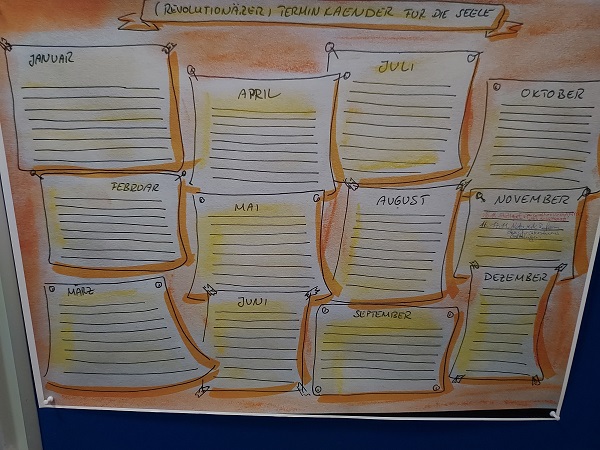 (REVOLUTIONÄRER) TERMINKAENDER FÜR DIE SEELE
JANUAR
FEBRUAR
MÄRZ
APRIL
MAI
JUNI
JULI
AUGUST
SEPTEMBER
OKTOBER
NOVEMBER
DEZEMBER